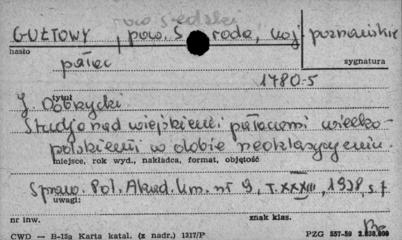 pow. Średzki
GUŁTOWY, pow. Środa, woj. poznańskie
hasło
pałac
sygnatura
1780-5
tytuł
J. Dobrzycki
Studja nad wiejskiemi pałacami wielko-
polskiemi w dobie neoklasycyzmu.
miejsce, rok wyd., nakładca, format, objętość
Spraw. Pol. Akad. Um. nr 9, T. XXXIII, 1938, s. 7
uwagi:
nr inw.
znak klas.
CWD — B-13a Karta katal. (z nadr.) 1317/P
PZG 557-59